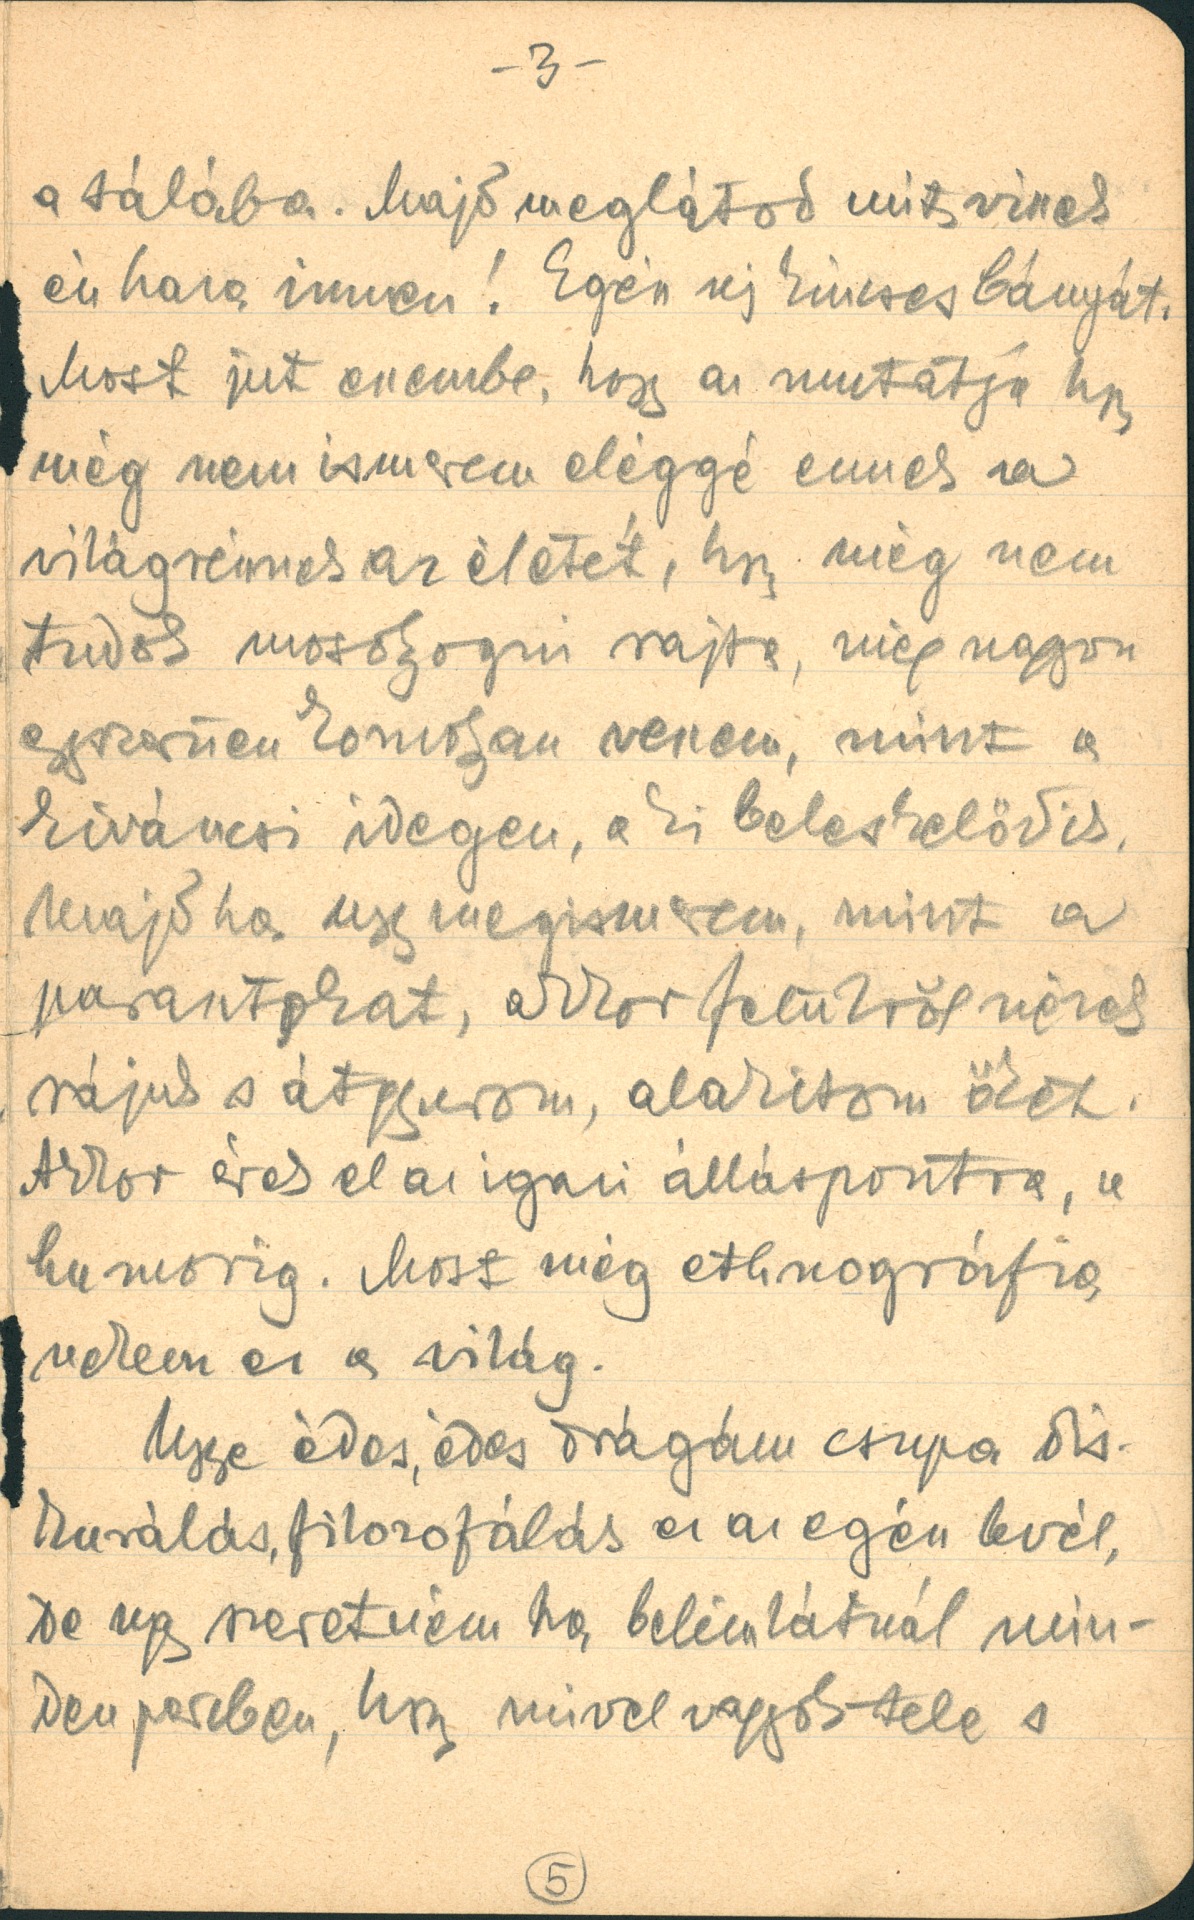 -3-
a tálába. Majd meglátod mit viszek
én haza innen! Egész uj kincses bányát.
Most jut eszembe, hogy az mutatja hgy
még nem ismerem eléggé ennek a
világrésznek az életét, hgy még nem
tudok mosolyogni rajta, még nagyon
egyszerüen komolyan veszem, mint a
kiváncsi idegen, a ki beleskelödik.
Majd ha ugy megismerem, mint a
parasztokat, akkor felülről nézek
rájuk s átgyurom, alakitom őket.
Akkor érek el az igazi álláspontra, a
humorig. Most még ethnográfia
nekem ez a világ.
Ugye édes, édes drágám csupa dis-
kurálás, filozofálás ez az egész levél,
de ugy szeretném ha belémlátnál min-
den percben, hgy mivel vagyok tele s
5